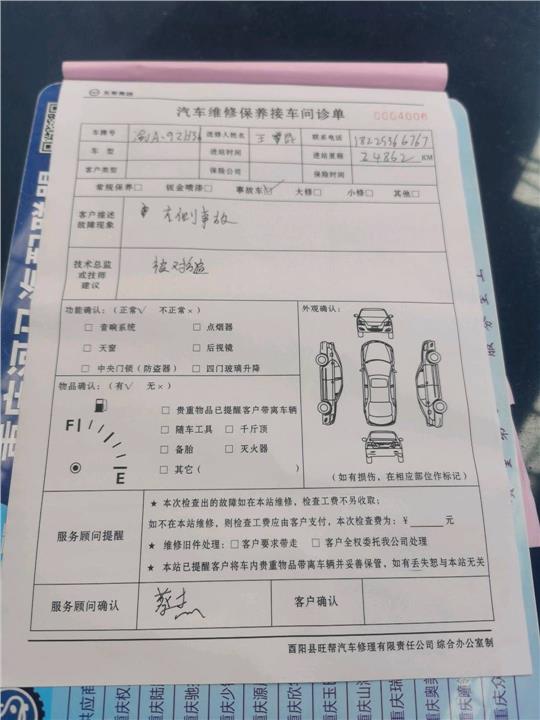 汽车维修保养接车问诊单 0004006
车牌号 送修人姓名 王 联系电话 18225366767
车 型 进站时间 进站里程 24862 KM
客户类型 保险公司 保险时间
常规保养□ 钣金喷漆□ 事故车☑ 大修□ 小修□ 其他□
客户描述
故障现象
左侧事故
技术总监
或技师
建议
功能确认：（正常√ 不正常×）
□ 音响系统 □ 点烟器
□ 天窗 □ 后视镜
□ 中央门锁（防盗器） □ 四门玻璃升降
外观确认：
（如有损伤，在相应部位作标记）
物品确认：（有√ 无×）
F
E
□ 贵重物品已提醒客户带离车辆
□ 随车工具 □ 千斤顶
□ 备胎 □ 灭火器
□ 其它（ ）
服务顾问提醒
★ 本次检查出的故障如在本站维修，检查工费不另收取；
如不在本站维修，则检查工费应由客户支付，本次检查费为：￥______元
★ 维修旧件处理：□ 客户要求带走 □ 客户全权委托我公司处理
★ 本站已提醒客户将车内贵重物品带离车辆并妥善保管，如有丢失恕与本站无关
服务顾问确认 客户确认
酉阳县旺帮汽车修理有限责任公司 综合办公室制